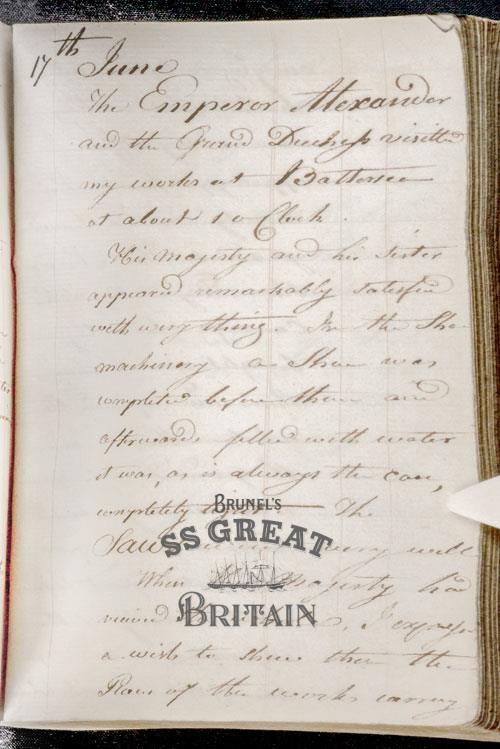 17th June
The Emperor Alexander
and the Grand Duchess visited
my works at Battersea
at about 1 o Clock.
His Majesty and his Sister
appeared remarkably satisfied
with every thing. In the Shoe
machinery a Shoe was
completed before them and
afterwards filled with water
it was, as is always the case,
completely The
Saw very well
When Majesty had
viewed, I express
a wish to shew them the
Plan of the works carrying
BRUNEL'S
SS GREAT
BRITAIN